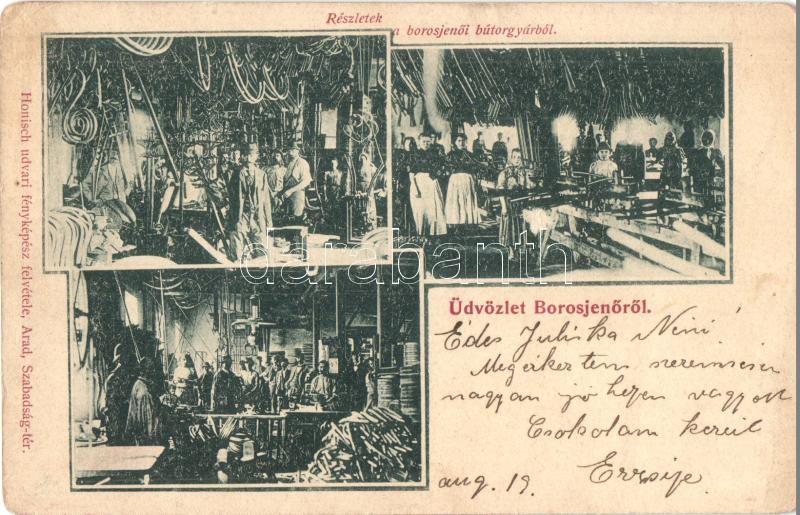 Részletek
a borosjenői bútorgyárból.
Honisch udvari fényképész felvétele, Arad, Szabadság-tér.
darabanth
Üdvözlet Borosjenőről.
Édes Juliska Néni
Megérkeztem szerencsésen
nagyon jó helyen vagyok
Csokolom kezeit
Erzsije
aug. 19.